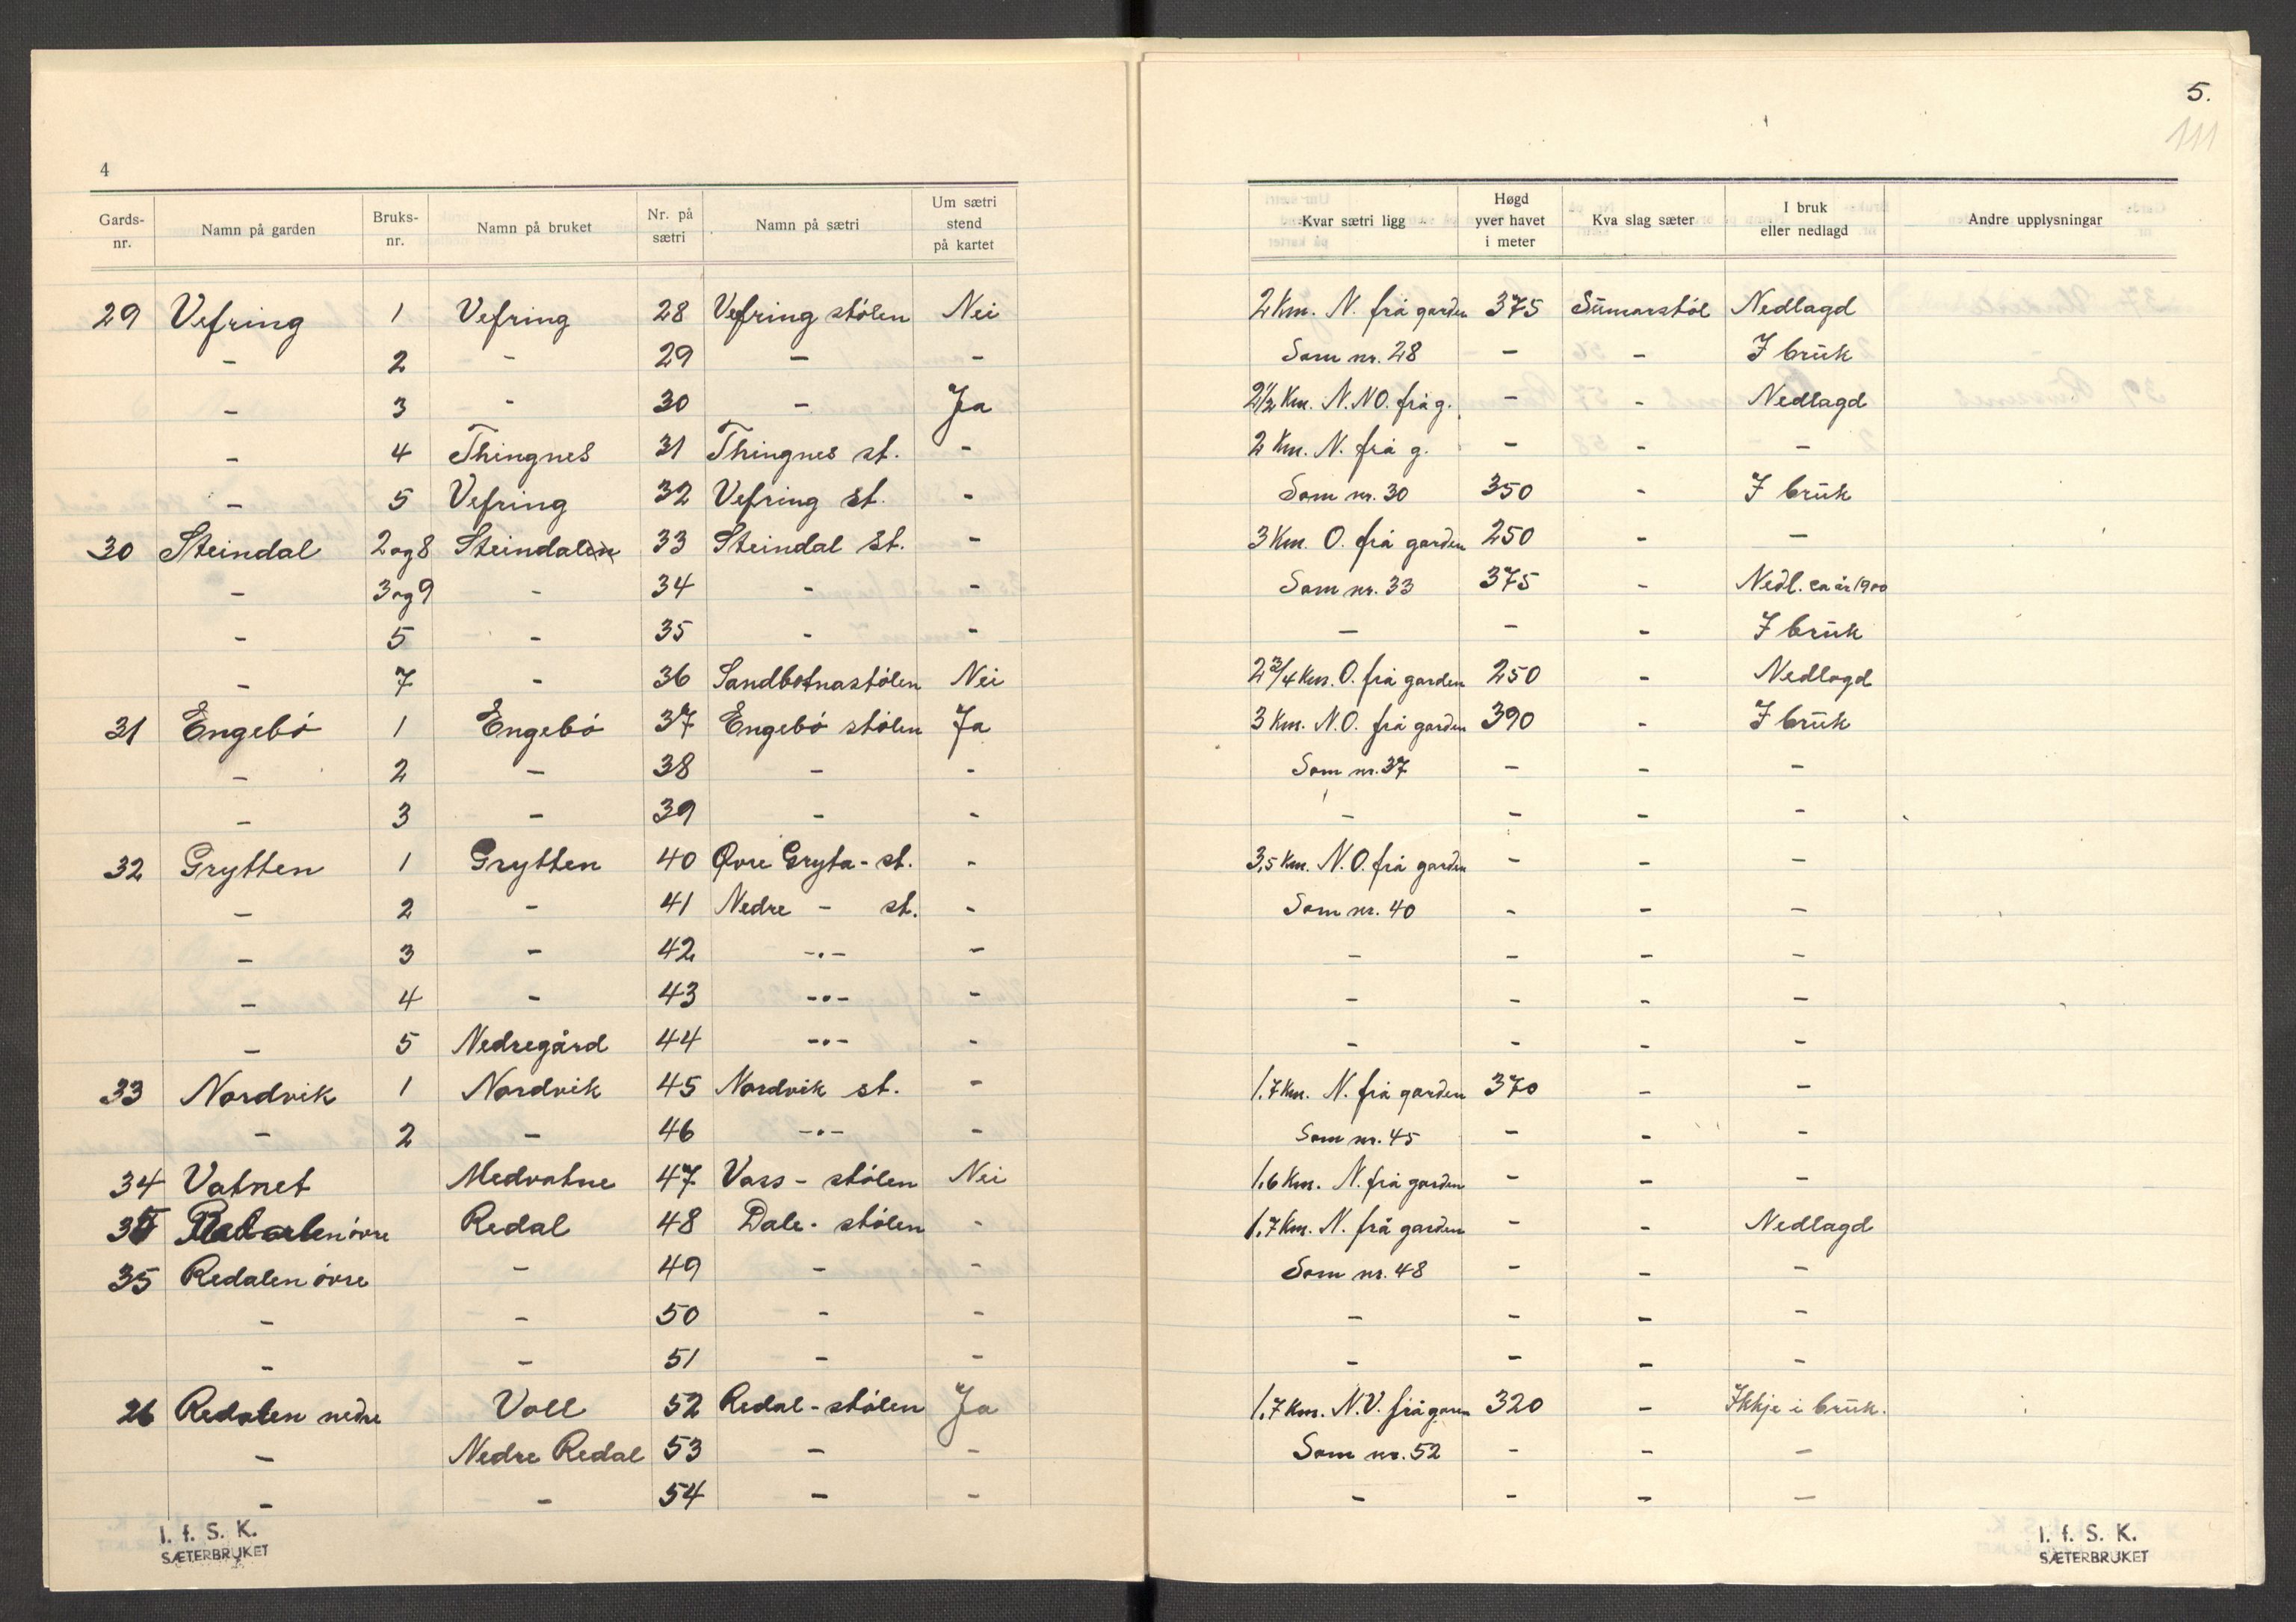 4
Gards-nr. Namn på garden Bruks-nr. Namn på bruket Nr. på sætri Namn på sætri Um sætri stend på kartet
29 Vefring 1 Vefring 28 Vefring stølen Nei
- 2 - 29 - -
- 3 - 30 - Ja
- 4 Thingnes 31 Thingnes st. -
- 5 Vefring 32 Vefring st. -
30 Steindal 2 og 8 Steindalen 33 Steindal st. -
- 3 og 9 - 34 - -
- 5 - 35 - -
- 7 - 36 Sandbotnastølen Nei
31 Engebó 1 Engebó 37 Engebó stølen Ja
- 2 - 38 - -
- 3 - 39 - -
32 Grytten 1 Grytten 40 Øvre Gryta-st. -
- 2 - 41 Nedre - st. -
- 3 - 42 -.- -
- 4 - 43 -.- -
- 5 Nedregård 44 -.- -
33 Nordvik 1 Nordvik 45 Nordvik st. -
- 2 - 46 -.- -
34 Vatnet Medvatne 47 Vass-stólen Nei
35 Redalen óvre Redal 48 Dale-stólen -
35 Redalen óvre - 49 - -
- - 50 - -
- - 51 - -
26 Redalen nedre Voll 52 Redal-stólen Ja
- Nedre Redal 53 - -
- - 54 - -
I. f. S. K.
SÆTERBRUKET
5.
111
Kvar sætri ligg Høgd yver havet i meter Kva slag sæter I bruk eller nedlagd Andre upplysningar
2 Km. N. frå garden 375 Sümarstól Nedlagd
Som nr. 28 - - I brük
2 1/2 Km. N.NO. frå g. - - Nedlagd
2 Km. N. frå g. - - -
Som nr. 30 350 - I brük
3 Km. O. frå garden 250 - -
Som nr. 33 375 - Nedl. ca år 1900
- - - I brük
2 3/4 Km. O. frå garden 250 - Nedlagd
3 Km. N.O. frå garden 390 - I brük
Som nr. 37 - - -
- - - -
3,5 Km. N.O. frå garden - - -
Som nr. 40 - - -
- - - -
- - - -
- - - -
1,7 Km. N. frå garden 370 - -
Som nr. 45 - - -
1,6 Km. N. frå garden - - -
1,7 Km. N. frå garden - - Nedlagd
Som nr. 48 - - -
- - - -
- - - -
1,7 Km. N.V. frå garen 320 - Ikkje i brük.
Som nr. 52 - - -
- - - -
I. f. S. K.
SÆTERBRUKET